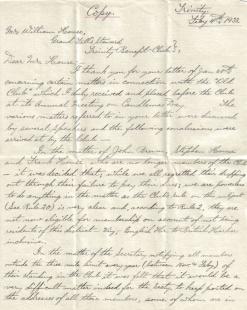 Copy.
Trinity,
Feby 4th 1932
Mr William House,
Grand Falls Steward
Trinity Benefit Club,
Dear Mr House,
I thank you for your letter of Jan 25th
concerning certain matters in connection with the "Old
Club" which I duly received and placed before the Club
at its Annual Meeting on Candlemas Day. The
various matters referred to in your letter were discussed
by several speakers and the following conclusions were
arrived at by the Club:-
In the matter of John Brown, Stephen House
and Frank House who are no longer members of the Club
- it was decided that, while we all regretted their dropping
out through their failure to pay their dues, we are powerless
to do anything in the matter as the Club's rule on the subject
(See Rule 20) is very clear and, according to Rule 2, they are
not now eligible for membership on account of not being
residents of this district - viz, English Hr to British Harbor
inclusive.
In the matter of the Secretary notifying all members
outside this rule limit every year (between Nov & Feby) of
their standing in the Club it was felt that it would be a
very difficult matter indeed for the Secty to keep posted on
the addresses of all these members, some of whom are in